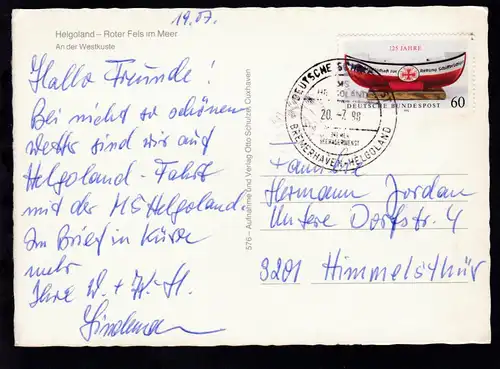 19.07.
Helgoland – Roter Fels im Meer
An der Westküste
Hallo Freunde!
Bei nicht so schönem
Wetter sind wir auf
Helgoland-Fahrt
mit der MS Helgoland.
Im Brief in Kürze
mehr
Ihre W. + H.
Lindemann
576 – Aufnahme und Verlag Otto Schulze, Cuxhaven
125 JAHRE
DEUTSCHE BUNDESPOST
60
DEUTSCHE
20.-7.90
BREMERHAVEN-HELGOLAND
Familie
Hermann Jordan
Untere Dorfstr. 4
3201 Himmelsthür